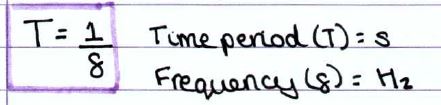 T = 1/f
Time period (T) = s
Frequency (f) = Hz